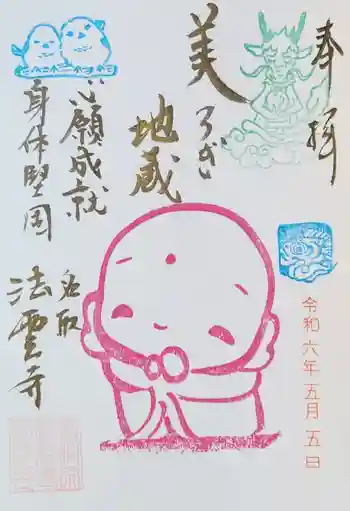 奉拝
美ろが
地蔵
心願成就
身体堅固
名取
法雲寺
令和六年五月五日